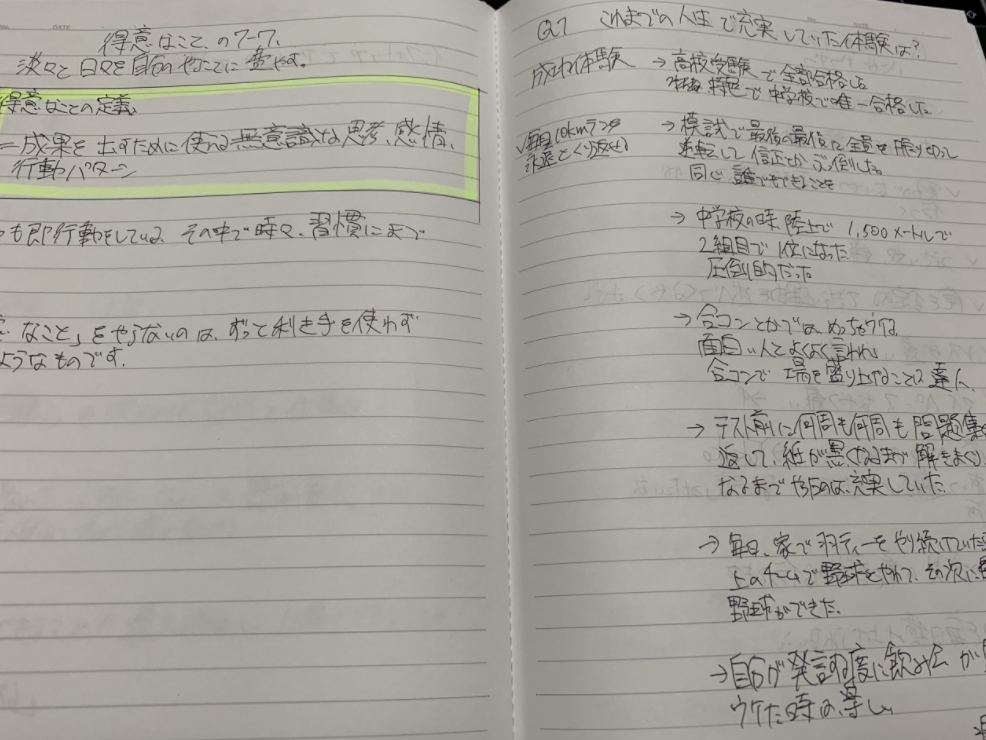 得意なことのワーク、
淡々と日々を自分のやることに費やす。
得意なことの定義
=成果を出すために使える無意識な思考、感情、
行動パターン
も即行動をしている。その中で時々、習慣にまで
なこと」をやらないのは、ずっと利き手を使わず
ようなものです。
Q.1 これまでの人生で充実していた体験は?
成功体験
→高校受験で全部合格した
特色で中学校で唯一合格した。
毎日10kmランを
永遠とくり返せる
→模試で最後の最後に全員を
逆転して
同じ誰でもできることを
→中学校の時陸上で1,500メートルで
2組目で1位になった
圧倒的だった
→合コンとかではめっちゃ
面白い人とよく言われ
合コンで場を盛り上げることは達人
→テスト前に何周も何周も問題集
返して、紙が黒くなるまで解きまくり
なるまでやったのは、充実していた。
→毎日、家で羽ティーをやり続けていた
上のチームで野球をやれて、その次に
野球ができた。
→自分が発言する度に飲み会が
ウケた時は、楽しい